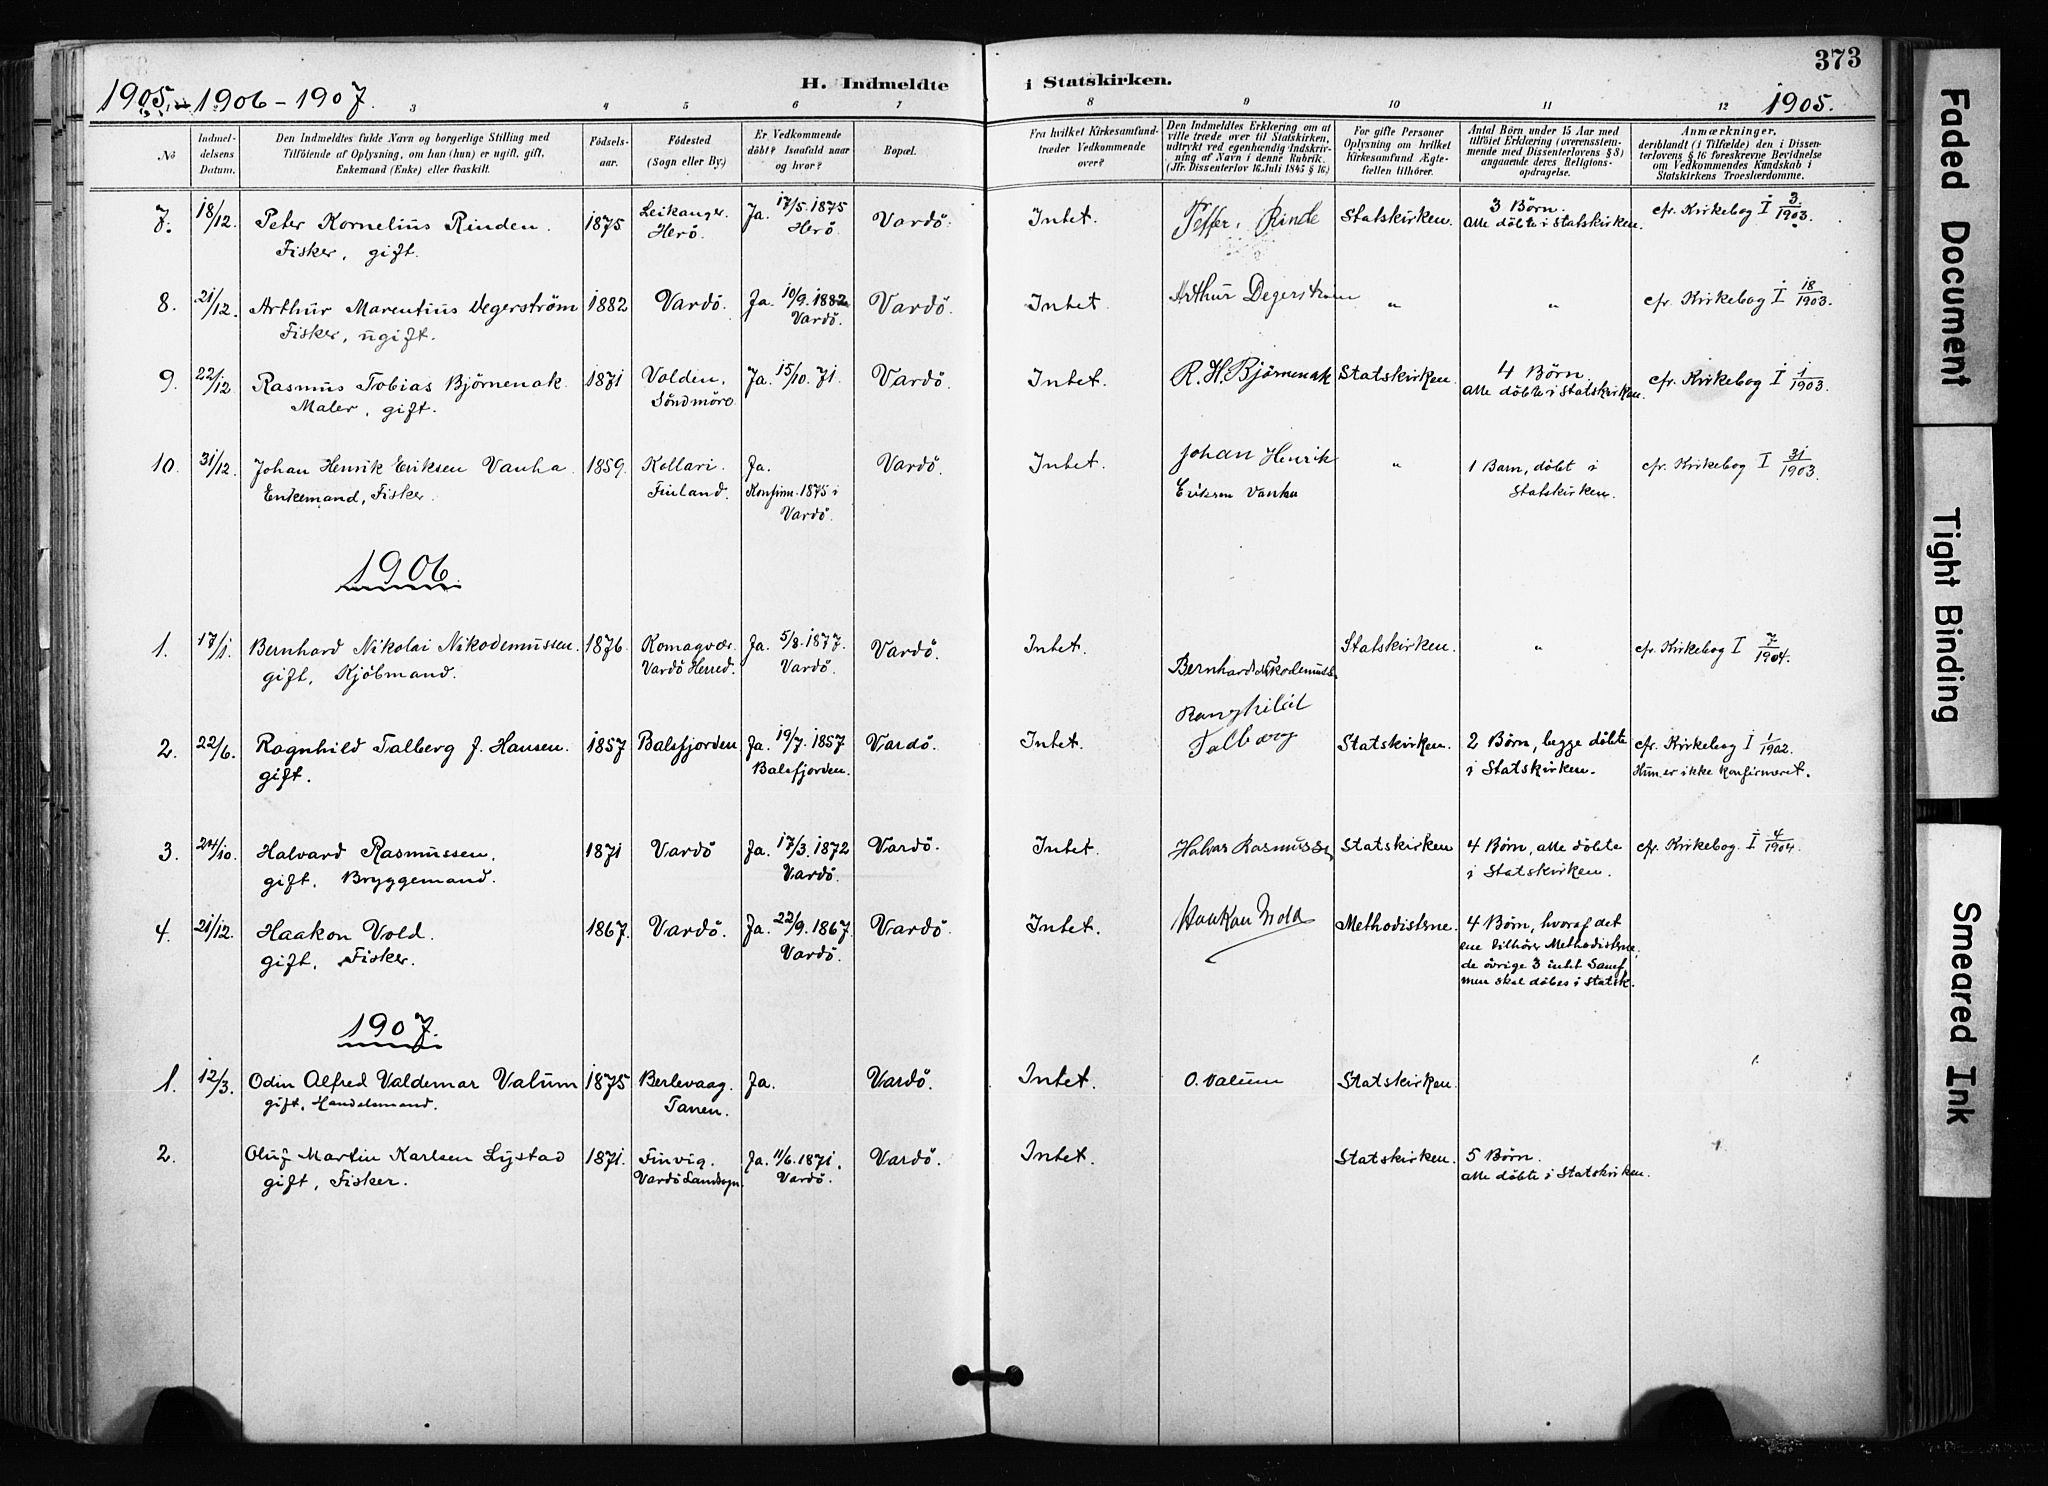 373
1905 - 1906 - 1907.
H. Indmeldte i Statskirken.
1905.
3 4 5 6 7 8 9 10 11 12
No
Indmel-
delsens
Datum.
Den Indmeldtes fulde Navn og borgerlige Stilling med
Tilföiende af Oplysning, om han (hun) er ugift, gift,
Enkemand (Enke) eller fraskilt.
Födsels-
aar.
Födested
(Sogn eller By.)
Er Vedkommende
döbt? Isaafald naar
og hvor?
Bopæl.
Fra hvilket Kirkesamfund
træder Vedkommende
over?
Den Indmeldtes Erklæring om at
ville træde over til Statskirken,
udtrykt ved egenhændig Indskriv-
ning af Navn i denne Rubrik.
(Jfr. Dissenterlov 16 Juli 1845 § 16.)
For gifte Personer
Oplysning om hvilket
Kirkesamfund Ægte-
fællen tilhörer.
Antal Börn under 15 Aar med
tilföiet Erklæring (overensstem-
mende med Dissenterlovens § 8)
angaaende deres Religions-
opdragelse.
Anmærkninger,
deriblandt (i Tilfælde) den i Dissen-
terlovens § 16 foreskrevne Bevidnelse
om Vedkommendes Kundskab i
Statskirkens Troeslærdomme.
7. 18/12. Peter Kornelius Rinden. 1875 Leikanger. Ja. 17/5. 1875 Vardö. Intet. Rinde Statskirken. 3 Börn. cfr. Kirkebog I 3/1903.
Fisker, gift. Herö. Herö. Alle döbte i Statskirken.
8. 21/12. Arthur Marentius Degerström 1882 Vardö. Ja. 10/9. 1882 Vardö. Intet. Arthur Degerström " " cfr. Kirkebog I 18/1903.
Fisker, ugift. Vardö.
9. 22/12 Rasmus Tobias Björnenak. 1871 Volden, Ja. 15/10. 71. Vardö. Intet. R. H. Björnenak Statskirken. 4 Börn. cfr. Kirkebog I 1/1903.
Maler, gift. Söndmöre Alle döbte i Statskirken.
10. 31/12. Johan Henrik Eriksen Vanha 1859. Kollari. Ja. Vardö. Intet. Johan Henrik " 1 Barn, döbt i cfr. Kirkebog I 31/1903.
Enkemand, Fisker. Finland. Konfirm. 1875 i Eriksen Vanha Statskirken.
Vardö.
1906.
1. 17/1. Bernhard Nikolai Nikodemussen. 1876. Komagvær Ja. 5/8. 1877. Vardö. Intet. Statskirken. " cfr. Kirkebog I 7/1904.
gift, Kjöbmand. Vardö Herred. Vardö. Bernhard Nikodemuss
Ranghild
2. 22/6. Ragnhild Talberg f. Hansen. 1857 Balsfjorden Ja. 19/7. 1857 Vardö. Intet. Talberg Statskirken. 2 Börn, begge döbte cfr. Kirkebog I 1/1902.
gift. Balsfjorden. i Statskirken. Hun er ikke konfirmeret.
3. 24/10. Halvard Rasmussen. 1871 Vardö Ja. 17/3. 1872 Vardö. Intet. Halvar Rasmussen Statskirken 4 Börn, alle döbte cfr. Kirkebog. I 4/1904.
gift. Bryggemand. Vardö. i Statskirken.
4. 21/12. Haakon Vold. 1867. Vardö. Ja. 22/9. 1867. Vardö. Intet. Haakon Vold Methodisterne. 4 Börn, hvoraf det
gift, Fisker. Vardö. ene tilhörer Methodisterne,
de övrige 3 intet Samf,
men skal döbes i Statsk.
1907.
1. 12/3. Odin Alfred Valdemar Valum 1875 Berlevaag. Ja. Vardö. Intet. O. Valum Statskirken.
gift, Handelsmand. Tanen.
2. Oluf Martin Karlsen Lystad 1871. Finvig. Ja. 11/6. 1871. Vardö. Intet. Statskirken. 5 Börn.
gift, Fisker. Vardö Landsogn. Vardö. alle döbte i Statskirken.
Faded Document
Tight Binding
Smeared Ink